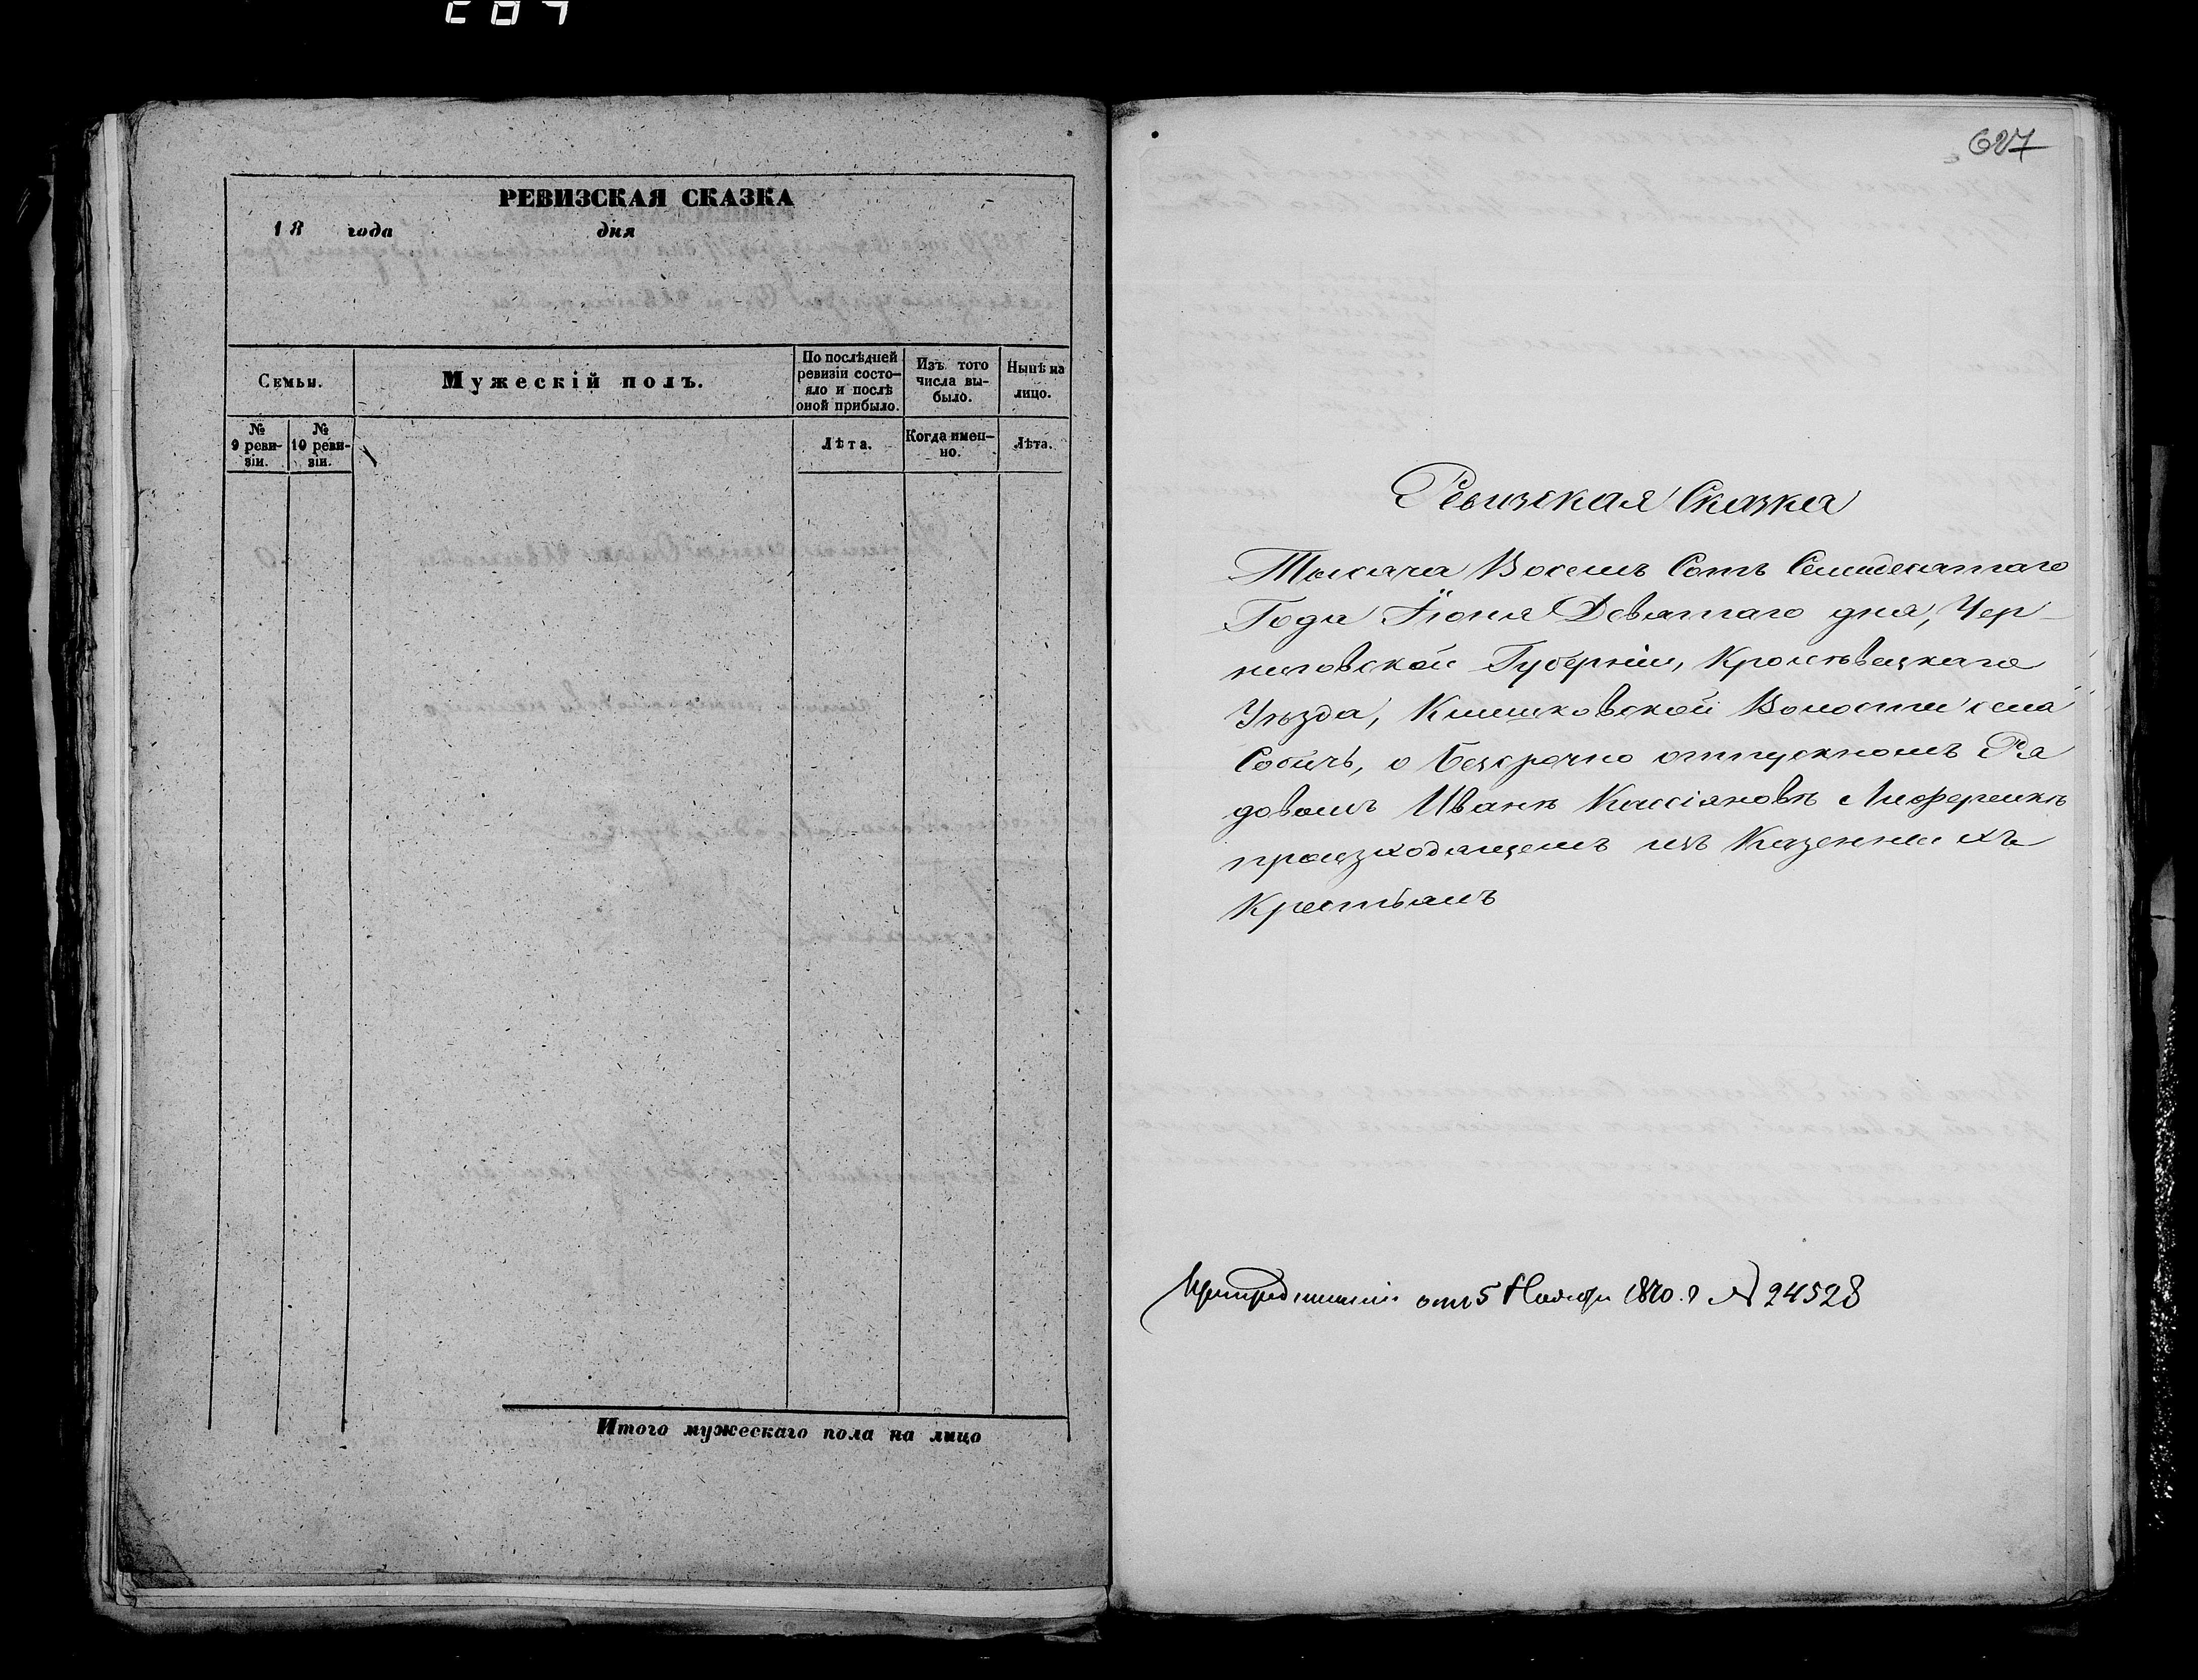 РЕВИЗСКАЯ СКАЗКА
18 года дня
Семьи.
Мужескій полъ.
По послѣдней ревизіи состо-
яло и послѣ
оной прибыло.
Изъ того
числа вы-
было.
Нынѣ на
лицо.
№
9 реви-
зіи.
№
10 реви-
зіи.
Лѣта.
Когда имен-
но.
Лѣта.
Итого мужескаго пола на лицо
627
Ревизская Сказка
Тысяча Восемъ Сотъ Семидесятаго
Года Іюня Девятаго дня, Чер-
ниговской Губерніи, Кролѣвецкаго
Уѣзда, Клишковской Волости села
Собичъ, о безсрочно отпускномъ Ря
довомъ Иванѣ Кассіяновѣ
произходящемъ изъ Казенныхъ
Крестьянъ
отъ 5 Ноября 1870 г № 24528